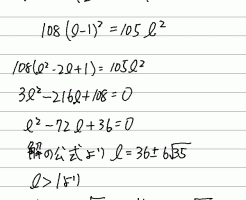 108(l-1)²=105l²
108(l²-2l+1)=105l²
3l²-216l+108=0
l²-72l+36=0
解の公式より l=36±6√35
l>1より